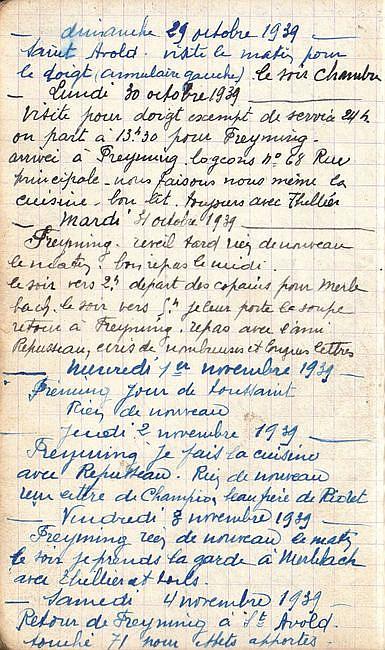 — dimanche 29 octobre 1939
Saint Avold. visite le matin pour
le doigt (annulaire gauche). le soir chambre
— Lundi 30 octobre 1939 —
Visite pour doigt exempt de service 24h
on part à 13h30 pour Freyming.
arrivée à Freyming. logeons n° 68 Rue
principale. nous faisons nous même la
cuisine. bon lit. toujours avec Thellier
— Mardi 31 octobre 1939 —
Freyming. reveil tard rien de nouveau
le matin. bon repas le midi.
le soir vers 2h depart des copains pour Merle
bach. le soir vers je leur porte la soupe
retour à Freyming. repas avec l'ami
Repusseau, ecris de nombreuses et longues lettres
— Mercredi 1er novembre 1939 —
Freming Jour de Toussaint
Rien de nouveau
— Jeudi 2 novembre 1939 —
Freyming je fais la cuisine
avec Repusseau. Rien de nouveau
reçu lettre de Champion beau frère de
— Vendredi 3 novembre 1939 —
Freyming rien de nouveau le matin
le soir je prends la garde à Merlebach
avec Thellier et
— Samedi 4 novembre 1939 —
Retour de Freyming à St Avold.
touché 71 pour effets apportés.